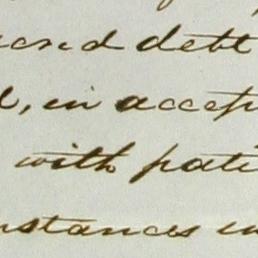 acred debt
d, in accep
with pati
mstances in